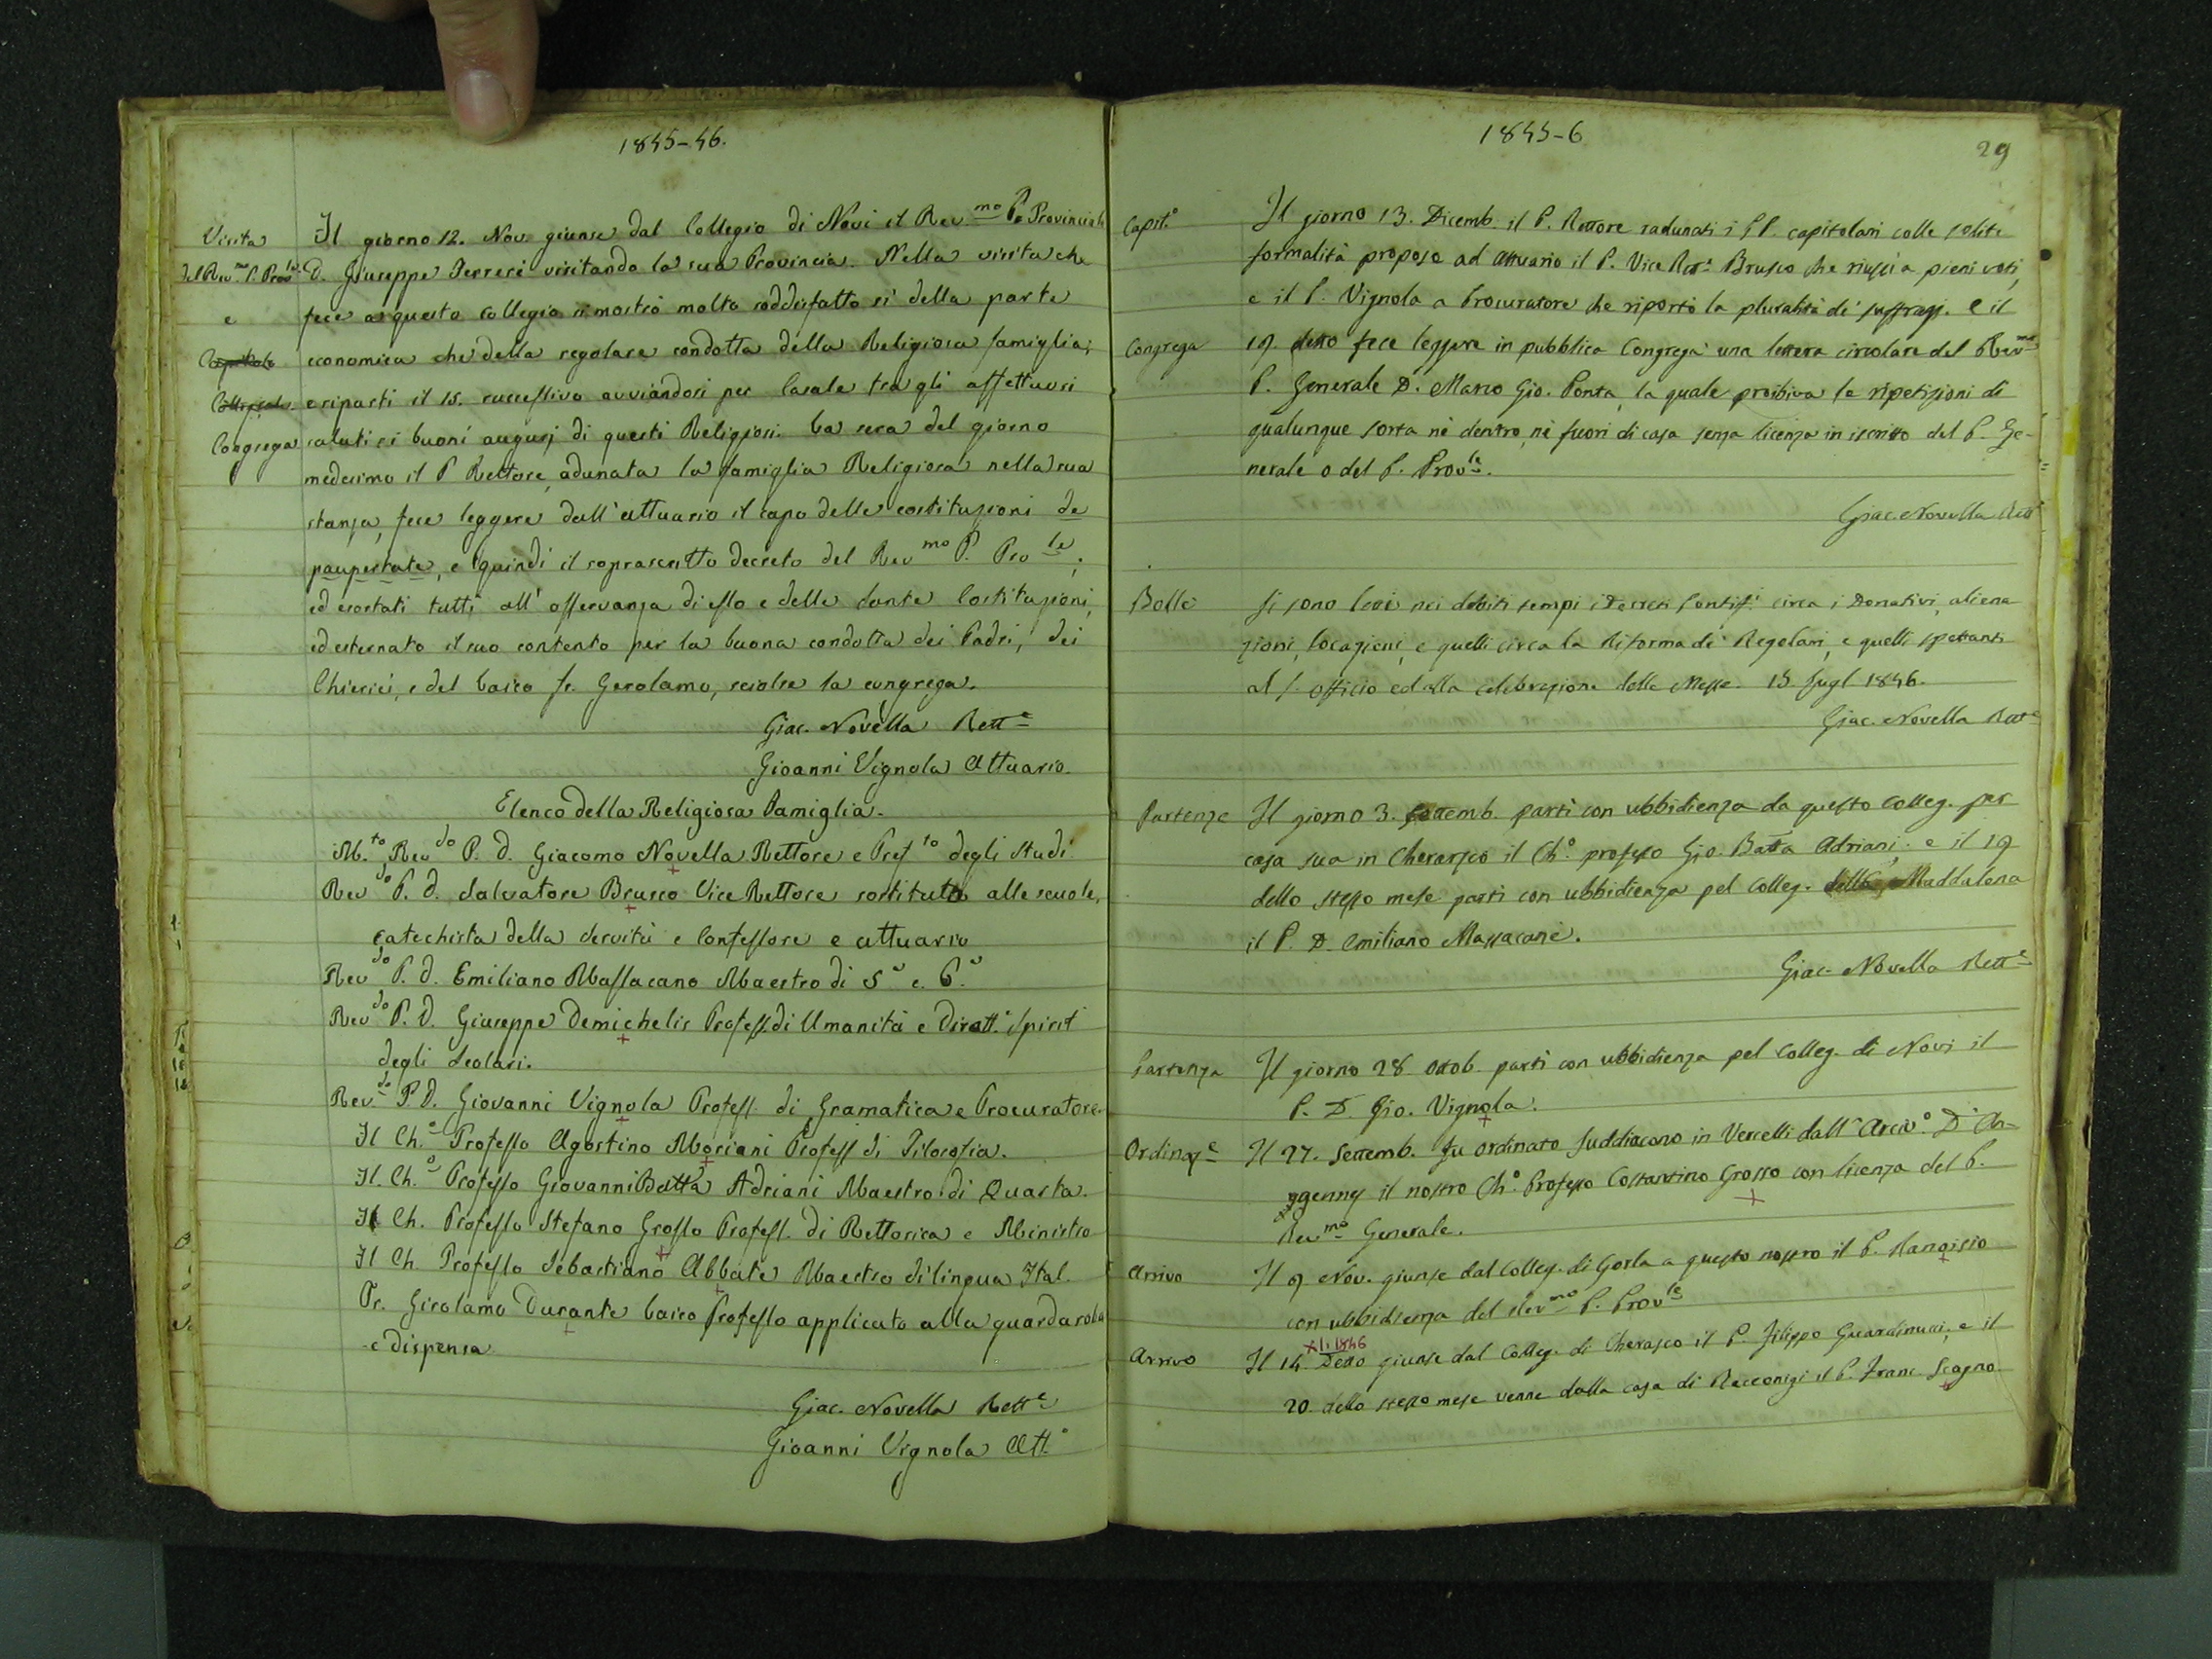 1845-46.
Visita
del Rev.mo P. Prov.le
e
Capitolo
Collegiale
Congrega
Il giorno 12. Nov. giunse dal Collegio di Novi il Rev.mo P. Provinciale
D. Giuseppe Ferreri visitando la sua Provincia. Nella visita che
fece a questo collegio si mostrò molto soddisfatto sì della parte
economica che della regolare condotta della Religiosa famiglia;
e ripartì il 15. successivo avviandosi per Casale tra gli affettuosi
saluti ei buoni augurj di questi Religiosi. La sera del giorno
medesimo il P Rettore, adunata la famiglia Religiosa nella sua
stanza, fece leggere dall'attuario il capo delle costituzioni de
paupertate, e quindi il soprascritto decreto del Rev mo P. Pro le;
ed esortati tutti all'osservanza di esso e delle sante Costituzioni,
ed esternato il suo contento per la buona condotta dei Padri, dei
Chierici, e del laico fr. Gerolamo, sciolse la congrega.
Giac. Novella Rett.e
Gioanni Vignola Attuario.
Elenco della Religiosa Famiglia.
M.to Rev do P. D. Giacomo Novella Rettore e Pref to degli Studi
Rev do P. D. Salvatore Brusco Vice Rettore sostituto alle scuole,
catechista della servitù e Confessore e attuario
Rev do P. D. Emiliano Massacano Maestro di 5a e 6a
Rev do P. D. Giuseppe Demichelis Profess. di Umanità e Dirett.e Spirit
degli Scolari.
Rev.do P. D. Giovanni Vignola Profess. di Gramatica e Procuratore.
Il Ch.o Professo Agostino Moriani Profess di Filosofia.
Il. Ch.o Professo Giovanni Batta Adriani Maestro di Quarta.
Il Ch. Professo Stefano Grosso Profess. di Rettorica e Ministro
Il Ch Professo Sebastiano Abbate Maestro di lingua Ital.
Fr. Girolamo Durante laico Professo applicato alla guardaroba
e dispensa
Giac. Novella Rett.e
Gioanni Vignola Att.o
1845-6
29
Capit.o
Il giorno 13. Dicemb. il P. Rettore radunati i PP. capitolari colle solite
formalità propose ad Attuario il P. Vice Rett.e Brusco che riuscì a pieni voti,
e il P. Vignola a Procuratore che riportò la pluralità di suffragj. e il
Congrega
19. detto fece leggere in pubblica Congrega una lettera circolare del Rev.mo
P. Generale D. Marco Gio. Ponta, la quale proibiva le ripetizioni di
qualunque sorta nè dentro, nè fuori di casa senza licenza in iscritto del P. Ge-
nerale o del P. Prov.le.
Giac. Novella Rett.e
Bolle
Si sono letti nei debiti tempi i Decreti Pontif.i circa i Donativi, aliena
zioni, locazioni, e quelli circa la Riforma dei Regolari, e quelli spettanti
al S. Officio ed alla celebrazione delle Messe. 15. Lugl 1846.
Giac. Novella Rett.e
Partenze
Il giorno 3. Settemb. partì con ubbidienza da questo Colleg. per
casa sua in Cherasco il Ch.o professo Gio. Batta Adriani; e il 19
dello stesso mese partì con ubbidienza pel Colleg. della Maddalena
il P. D. Emiliano Massacane.
Giac. Novella Rett.e
Partenza
Il giorno 28 Ottob. partì con ubbidienza pel Colleg. di Novi il
P. D. Gio. Vignola.
Ordinaz.e
Il 27. Settemb. fu ordinato Suddiacono in Vercelli dall'Arciv.o D'An-
ggenny il nostro Ch.o Professo Costantino Grosso con licenza del P.
Rev.mo Generale.
Arrivo
Il 9 Nov. giunse dal Colleg. di Gorla a questo nostro il P. Rangisio
con ubbidienza del Rev.mo P. Prov.le
XI. 1846
Arrivo
Il 14. Detto giunse dal Colleg. di Cherasco il P. Filippo Guardinucci, e il
20. dello stesso mese venne dalla casa di Racconigi il P. Franc. Scagno